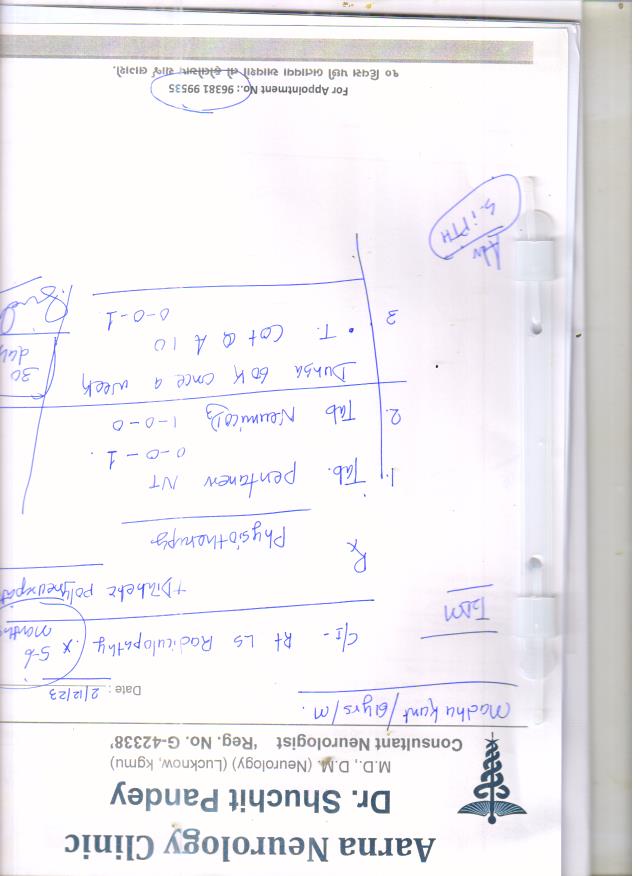 Aarna Neurology Clinic
Dr. Shuchit Pandey
M.D., D.M. (Neurology) (Lucknow, kgmu)
Consultant Neurologist 'Reg. No. G-42338'
Madhu Kant / 61yrs/M.
Date : 2/12/23
T2DM
C/I - Rt LS Radiculopathy x 5-6 months
+ Diabetic polyneuropat
Rx
Physiotherapy
1. Tab. Pentanerv NT
0-0-1.
2. Tab Neumico D3 1-0-0
Durisa 60K once a week
3 • T. Cat Q A 10
0-0-1
30 day
Adv
S. iPTH
For Appointment No.: 96381 99535